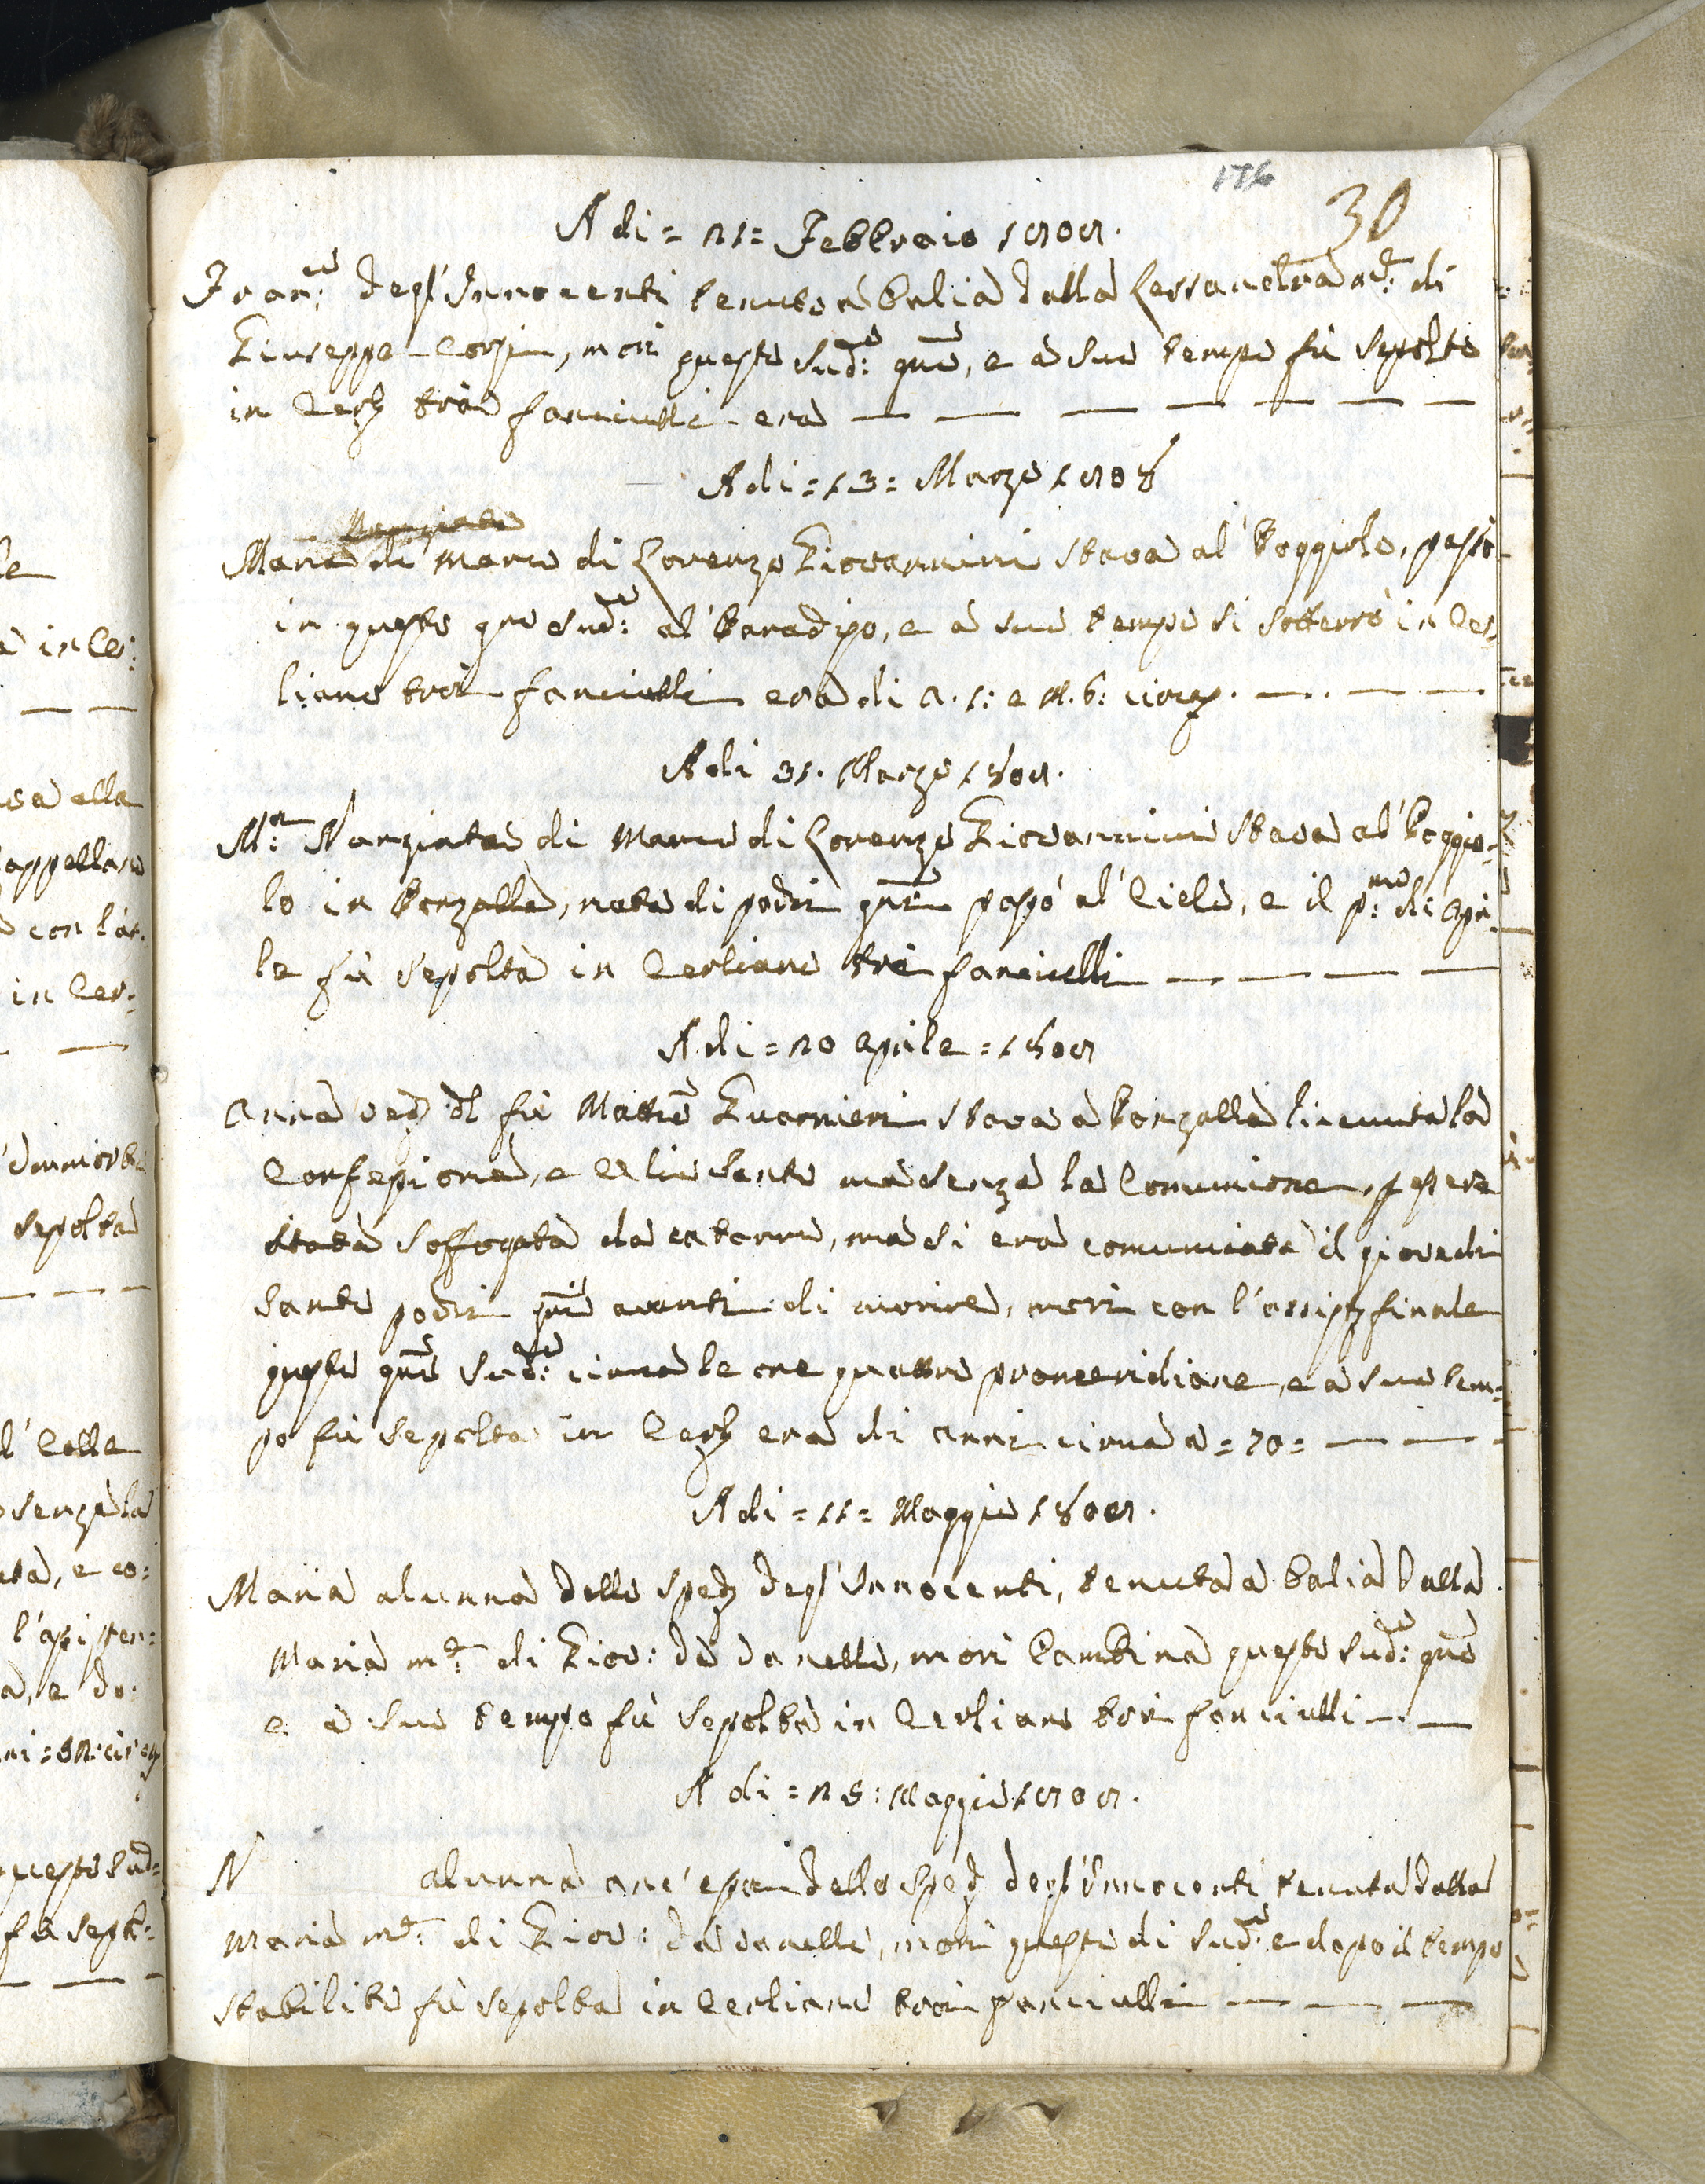 a in Cer:
sa alla
appellano
con l'as.
in Cer=
sepolta
l' Colle
senza la
l'assisten:
questo sud=
fù sepol:
176
30
A di = 21 = Febbraio 1808.
Fran:co degl'Innocenti tenuto à balia dalla md: di
Giuseppe Corsi, morì questo sud:o gno, e à suo tempo fù sepolto
in Cerl tra fanciulli era — — — — — — —
A di = 13 = Marzo 1808
Nunziata
Maria di Marco di Lorenzo Giovannini stava al' Poggiolo, passò
in questo gno sud:o al' Paradiso, e à suo tempo si sotterrò in Cer
liano tra fanciulli era di A. 1: e M. 6: circa. — . — —
A di 31. Marzo 1808.
M:a Nunziata di Marco di Lorenzo Giovannini stava al' Poggio=
lo in Ponzalla, nata di pochi gni passò al' Cielo, e il p:mo di Apri
le fù sepolta in Cerliano trà fanciulli — — — —
A di = 20 Aprile = 1808
Anna ved del fù Matteo Guarnieri stava à Ponzalla ricevuta la
Confessione, e Olio santo ma senza la Comunione, p essere
stata soffogata da catarro, ma si era comunicata il giovedi
santo pochi gni avanti di morire, morì con l'assisz finale
questo gno sud:o circa le ore quattro promeridiane, e à suo tem=
po fù sepolta in Cerl era di anni circa a = 70 = — — —
A di = 11 = Maggio 1808.
Maria alunna dello sped degl'Innocenti, tenuta à balia dalla
Maria md: di Gio: da Vanelle, morì bambina questo sud:o gno
e à suo tempo fù sepolta in Cerliano tra fanciulli — . —
A di = 25 : Maggio 1808.
N alunna anc'essa dello sped degl'Innocenti tenuta dalla
Maria md: di Gio: da Vanelle, morì questo di sud:o e dopo il tempo
stabilito fù sepolta in Cerliano tra fanciulli — — —